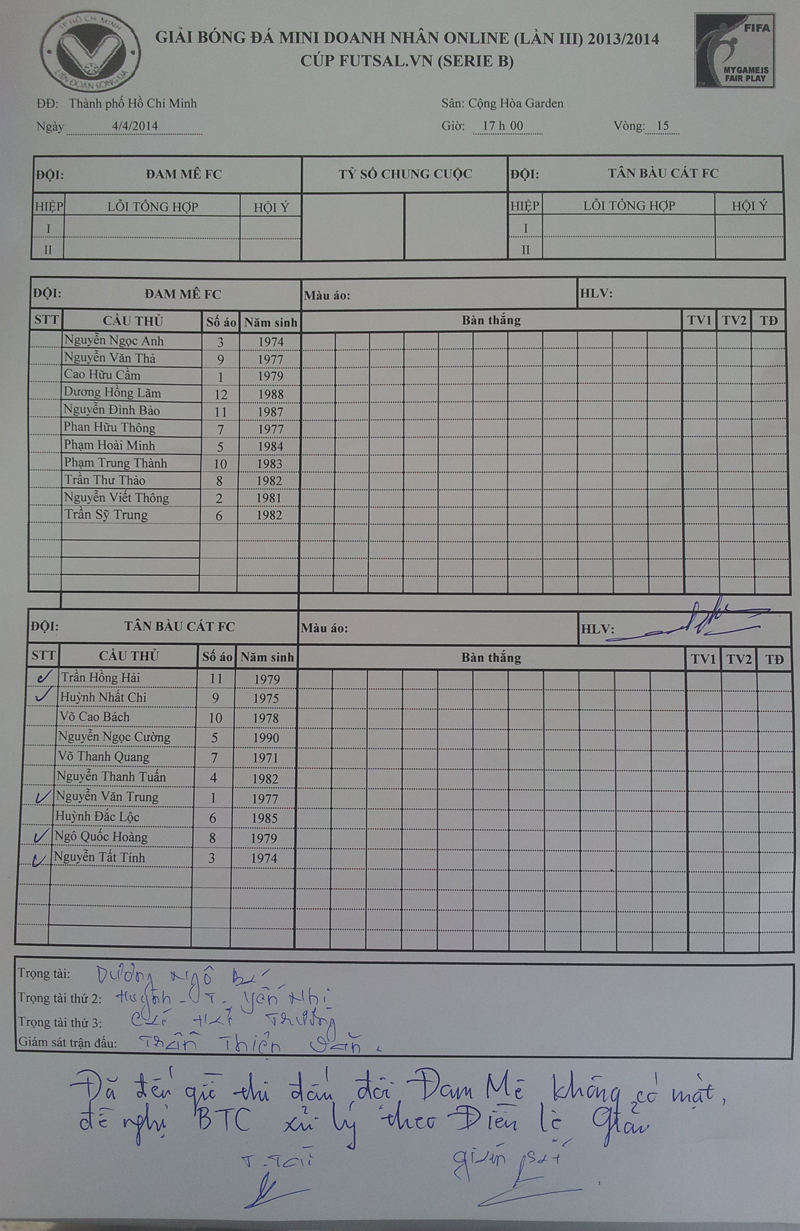 TP HỒ CHÍ MINH
LIÊN ĐOÀN BÓNG ĐÁ
GIẢI BÓNG ĐÁ MINI DOANH NHÂN ONLINE (LẦN III) 2013/2014
CÚP FUTSAL.VN (SERIE B)
FIFA
MY GAME IS
FAIR PLAY
ĐĐ: Thành phố Hồ Chí Minh Sân: Cộng Hòa Garden
Ngày 4/4/2014 Giờ: 17 h 00 Vòng: 15
ĐỘI: ĐAM MÊ FC TỶ SỐ CHUNG CUỘC ĐỘI: TÂN BÀU CÁT FC
HIỆP LỖI TỔNG HỢP HỘI Ý HIỆP LỖI TỔNG HỢP HỘI Ý
I I
II II
ĐỘI: ĐAM MÊ FC Màu áo: HLV:
STT CẦU THỦ Số áo Năm sinh Bàn thắng TV1 TV2 TĐ
Nguyễn Ngọc Anh 3 1974
Nguyễn Văn Thả 9 1977
Cao Hữu Cầm 1 1979
Dương Hồng Lãm 12 1988
Nguyễn Đình Bảo 11 1987
Phan Hữu Thông 7 1977
Phạm Hoài Minh 5 1984
Phạm Trung Thành 10 1983
Trần Thư Thảo 8 1982
Nguyễn Viết Thông 2 1981
Trần Sỹ Trung 6 1982
ĐỘI: TÂN BÀU CÁT FC Màu áo: HLV:
STT CẦU THỦ Số áo Năm sinh Bàn thắng TV1 TV2 TĐ
Trần Hồng Hải 11 1979
Huỳnh Nhất Chi 9 1975
Võ Cao Bách 10 1978
Nguyễn Ngọc Cường 5 1990
Võ Thanh Quang 7 1971
Nguyễn Thanh Tuấn 4 1982
Nguyễn Văn Trung 1 1977
Huỳnh Đắc Lộc 6 1985
Ngô Quốc Hoàng 8 1979
Nguyễn Tất Tính 3 1974
Trọng tài: Dương Ngô
Trọng tài thứ 2: Huỳnh T. Yến Nhi
Trọng tài thứ 3: Trường
Giám sát trận đấu: Trần Thiện
Đã đến giờ thi đấu, đội Đam Mê không có mặt,
đề nghị BTC xử lý theo Điều lệ Giải
T. Tài giám sát